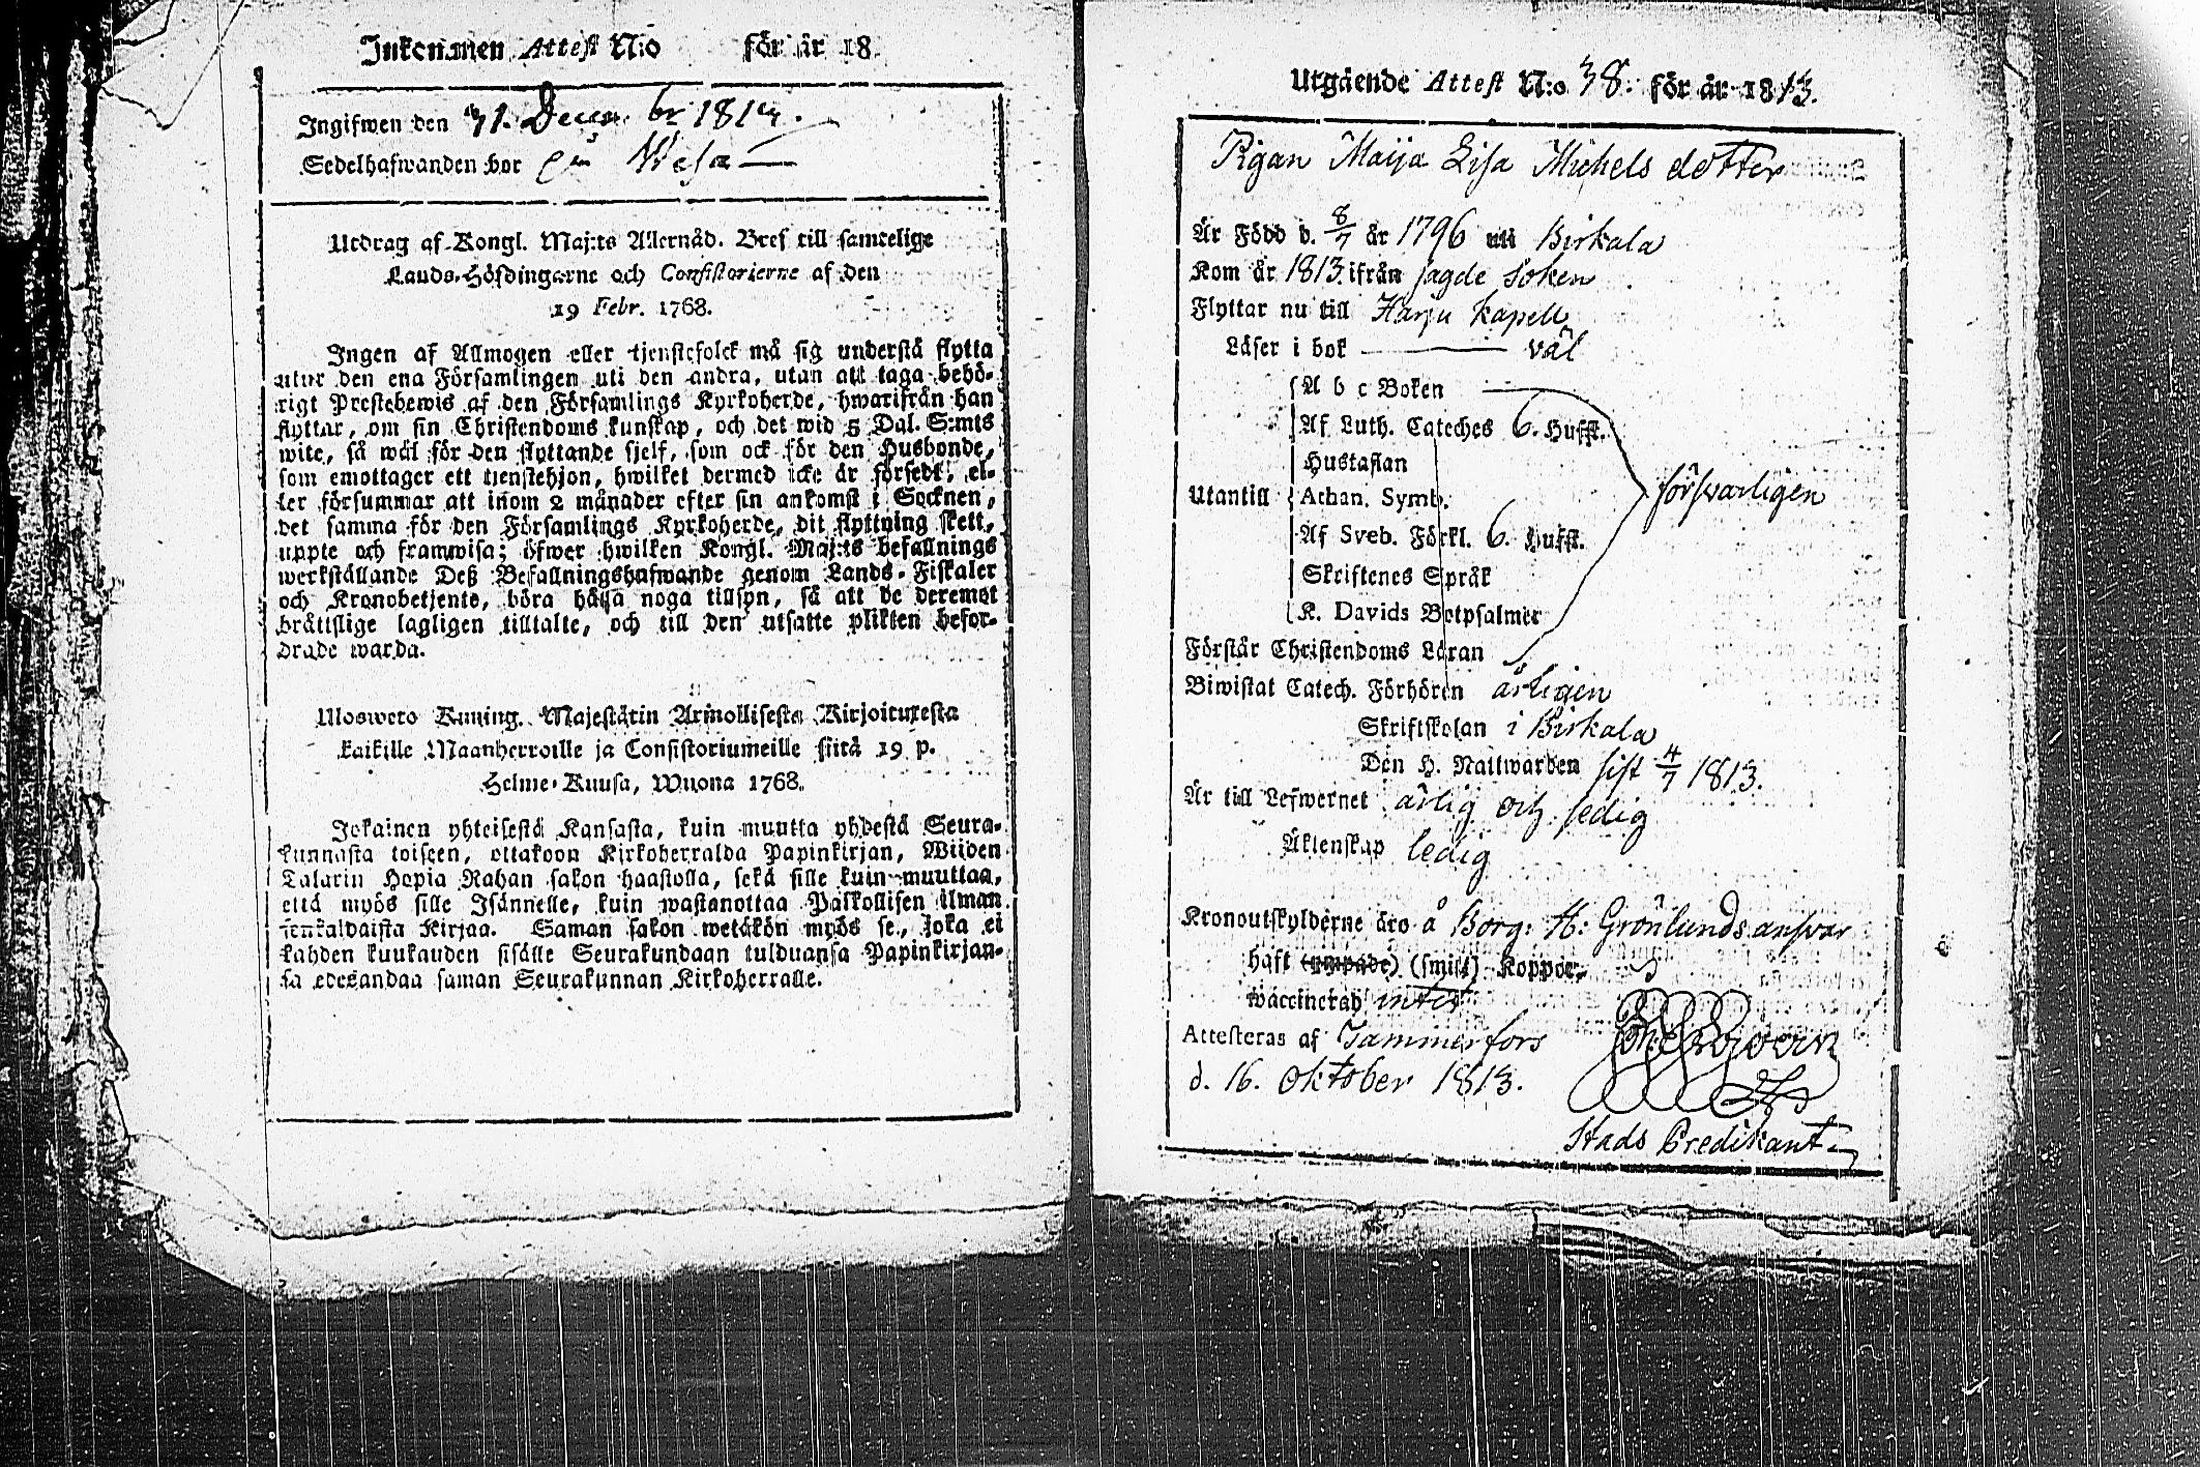 Inkommen Attest N:o för år 18
Ingifwen den 31. Decem br 1813.
Sedelhafwanden bor på Wesa
Utdrag af Kongl. Maj:ts Allernåd. Bref till samtelige
Lands-Höfdingarne och Consistorierne af den
19 Febr. 1768.
Ingen af Allmogen eller tjenstefolck må sig understå flytta
utur den ena Församlingen uti den andra, utan att taga behö-
rigt Prestebewis af den Församlings Kyrkoherde, hwarifrån han
flyttar, om sin Christendoms kunskap, och det wid 5 Dal. S:mts
wite, så wäl för den flyttande sjelf, som ock för den Husbonde,
som emottager ett tienstehjon, hwilket dermed icke är försedt, el-
ler försummar att inom 2 månader efter sin ankomst i Socknen,
det samma för den Församlings Kyrkoherde, dit flyttning skett,
uppte och framwisa; öfwer hwilken Kongl. Maj:ts befallnings
werkställande Deß Befallningshafwande genom Lands-Fiskaler
och Kronobetjente, böra hålla noga tillsyn, så att de deremot
bråttslige lagligen tilltalte, och till den utsatte plikten befor-
drade warda.
Ulosweto Kuning. Majestätin Armollisesta Kirjoituxesta
kaikille Maanherroille ja Consistoriumeille siitä 19 p.
Helme-Kuusa, Wuona 1768.
Jokainen yhteisestä Kansasta, kuin muutta yhdestä Seura-
kunnasta toiseen, ottakoon Kirkoherralda Papinkirjan, Wiiden
Talarin Hopia Rahan sakon haastolla, sekä sille kuin muuttaa,
että myös sille Isännelle, kuin wastanottaa Palkollisen ilman
senkaldaista Kirjaa. Saman sakon wetäkön myös se, joka ei
kahden kuukauden sisälle Seurakundaan tulduansa Papinkirjan-
sa edesandaa saman Seurakunnan Kirkoherralle.
Utgående Attest N:o 38. för år 1813.
Pigan Maija Lisa Michels dotter
Är Född d. 8/7 år 1796 uti Birkala
Kom år 1813 ifrån sagde soken
Flyttar nu till Harju kapell
Läser i bok väl
A b c Boken
Af Luth. Cateches 6. Hufst.
Hustaflan
Utantill Athan. Symb. försvarligen
Af Sveb. Förkl. 6. Hufst.
Skriftenes Språk
K. Davids Botpsalmer
Förstår Christendoms Läran
Biwistat Catech. Förhören årligen
Skriftskolan i Birkala
Den H. Nattwarden sist 4/7 1813.
Är till Lefwernet ärlig och sedig
Äktenskap ledig
Kronoutskylderne äro å Borg: H: Grönlunds answar
haft (ympade) (smitt) Koppor,
waccinerad intet
Attesteras af Tammerfors
d. 16. Oktober 1813.
Stads Predikant